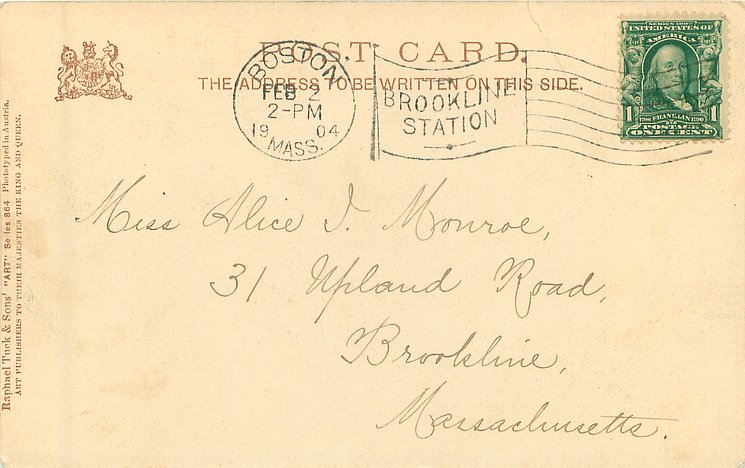 POST CARD.
THE ADDRESS TO BE WRITTEN ON THIS SIDE.
BOSTON
FEB 2
2-PM
19 04
MASS.
BROOKLINE
STATION
SERIES 1902
UNITED STATES OF
AMERICA
1 1706 FRANKLIN 1790 1
POSTAGE
ONE CENT
Miss Alice I. Monroe,
31 Upland Road,
Brookline,
Massachusetts.
Raphael Tuck & Sons' "ART" Series 864 Phototyped in Austria.
ART PUBLISHERS TO THEIR MAJESTIES THE KING AND QUEEN.